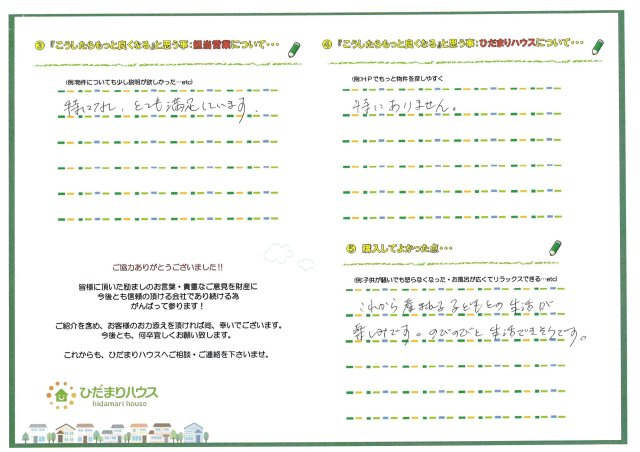 ③『こうしたらもっと良くなる』と思う事：担当営業について・・・
(例:物件についても少し説明が欲しかった…etc)
特になし、とても満足しています。
ご協力ありがとうございました!!
皆様に頂いた励ましのお言葉・貴重なご意見を財産に
今後とも信頼の頂ける会社であり続ける為
がんばって参ります！
ご紹介を含め、お客様のお力添えを頂ければ尚、幸いでございます。
今後とも、何卒宜しくお願い致します。
これからも、ひだまりハウスへご相談・ご連絡を下さいませ。
ひだまりハウス
hidamari house
④『こうしたらもっと良くなる』と思う事：ひだまりハウスについて・・・
(例:HPでもっと物件を探しやすく
特にありません。
⑤ 購入してよかった点・・・
(例:子供が騒いでも怒らなくなった・お風呂が広くてリラックスできる…etc)
これから産まれる子どもとの生活が
楽しみです。のびのびと生活できそうです。